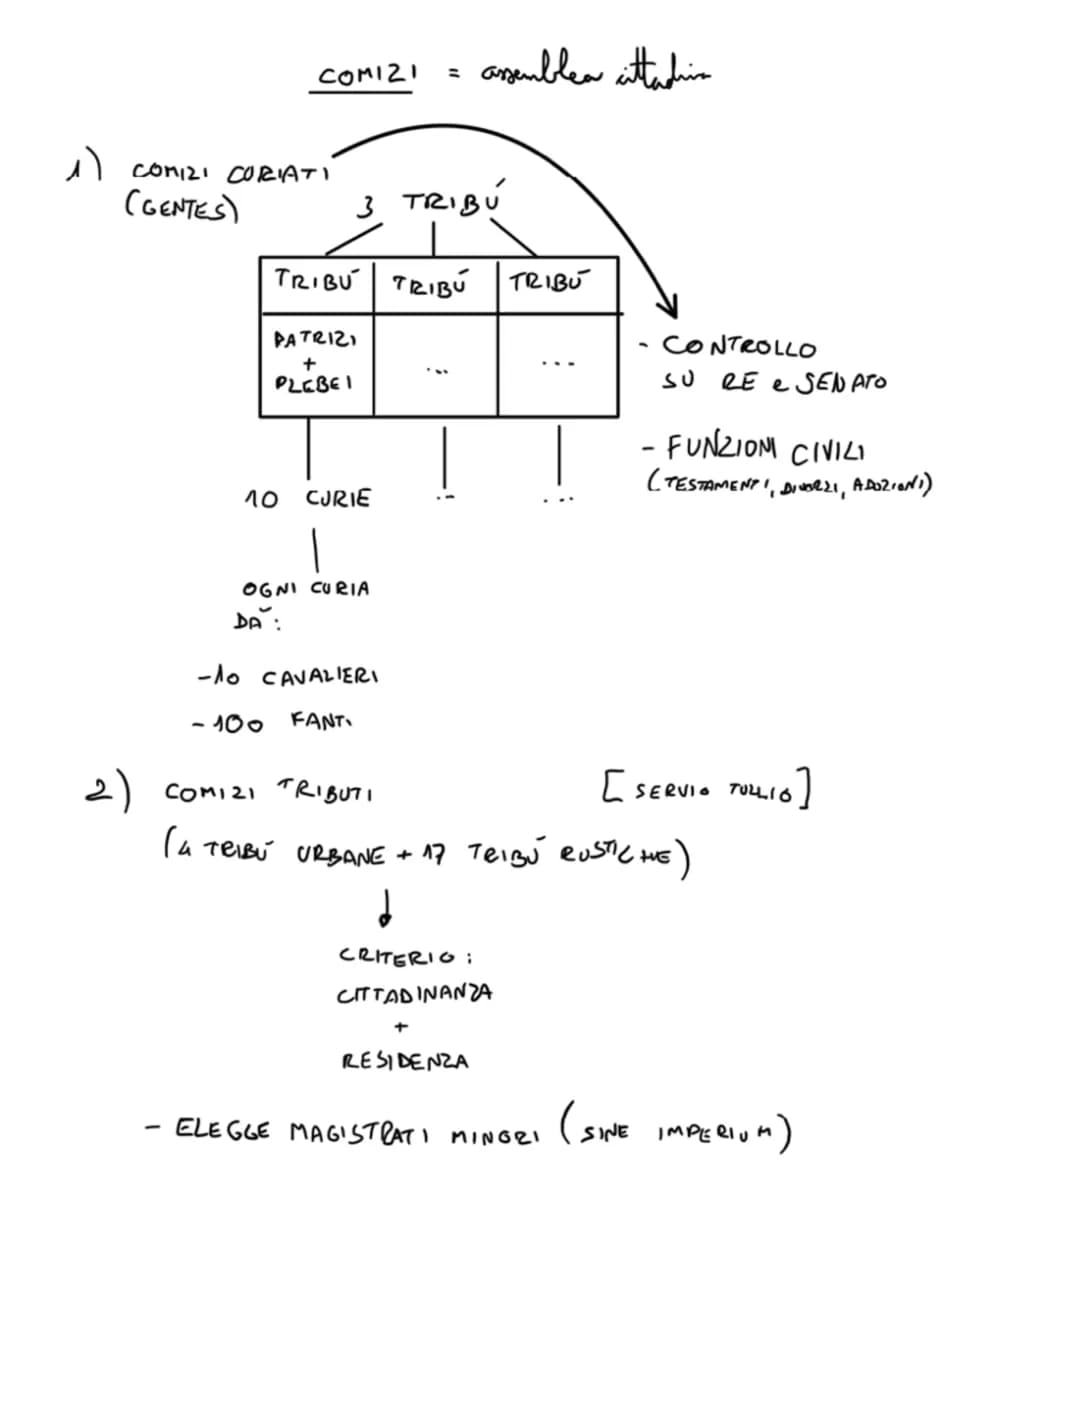 COMIZI = assemblea cittadina
1) COMIZI CURIATI
(GENTES)
3 TRIBÚ
TRIBÚ TRIBÚ TRIBÚ
PATRIZI
+
PLEBEI
...
...
- CONTROLLO
SU RE e SENATO
- FUNZIONI CIVILI
(TESTAMENTI, DIVORZI, ADOZIONI)
10 CURIE
...
...
OGNI CURIA
DÀ:
-10 CAVALIERI
- 100 FANTI
2) COMIZI TRIBUTI [SERVIO TULLIO]
(4 TRIBÚ URBANE + 17 TRIBÚ RUSTICHE)
CRITERIO:
CITTADINANZA
+
RESIDENZA
- ELEGGE MAGISTRATI MINORI (SINE IMPERIUM)